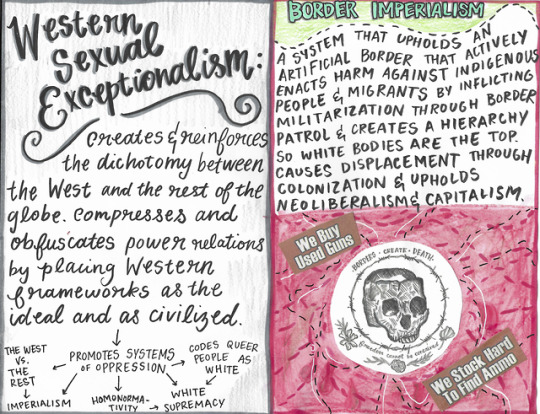 Western
Sexual
Exceptionalism:
Creates & reinforces
the dichotomy between
the West and the rest of the
globe. Compresses and
obfuscates power relations
by placing Western
frameworks as the
ideal and as civilized.
THE WEST
VS.
THE
REST
PROMOTES SYSTEMS
OF OPPRESSION
CODES QUEER
PEOPLE AS
WHITE
IMPERIALISM
HOMONORMA-
TIVITY
WHITE
SUPREMACY
BORDER IMPERIALISM
A SYSTEM THAT UPHOLDS AN
ARTIFICIAL BORDER THAT ACTIVELY
ENACTS HARM AGAINST INDIGENOUS
PEOPLE & MIGRANTS BY INFLICTING
MILITARIZATION THROUGH BORDER
PATROL & CREATES A HIERARCHY
SO WHITE BODIES ARE THE TOP.
CAUSES DISPLACEMENT THROUGH
COLONIZATION & UPHOLDS
NEOLIBERALISM & CAPITALISM.
We Buy
Used Guns
BORDERS · CREATE · DEATH
freedom cannot be contained
We Stock Hard
To Find Ammo